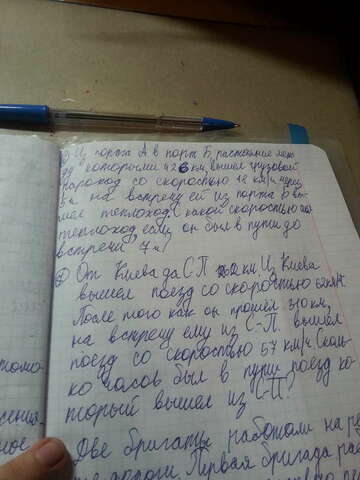 1) Из порта А в порт Б, расстояние меж-
ду которыми 426 км, вышел грузовой
пароход со скоростью 18 км/ч через
5ч на встречу ей из порта Б вы-
шел теплоход. С какой скоростью
теплоход, если он был в пути до
встречи 7ч?
2) От Киева до С П км Из Киева
вышел поезд со скоростью
После того как он прошёл 310 км,
на встречу ему из С-П. вышел
поезд со скоростью 57 км/ч Сколь-
ко часов был в пути поезд ко-
торый вышел из С-П?
Две бригады работали на
дороги. Первая бригада